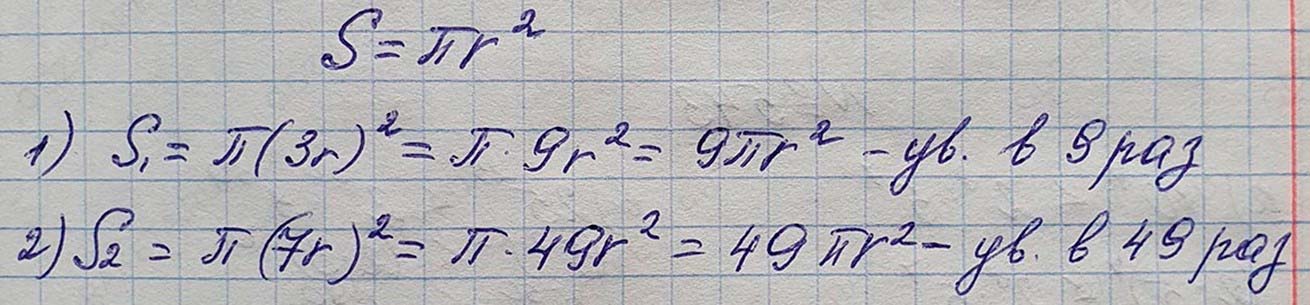 S = πr²
1) S₁ = π(3r)² = π · 9r² = 9πr² – ув. в 9 раз
2) S₂ = π(7r)² = π · 49r² = 49πr² – ув. в 49 раз